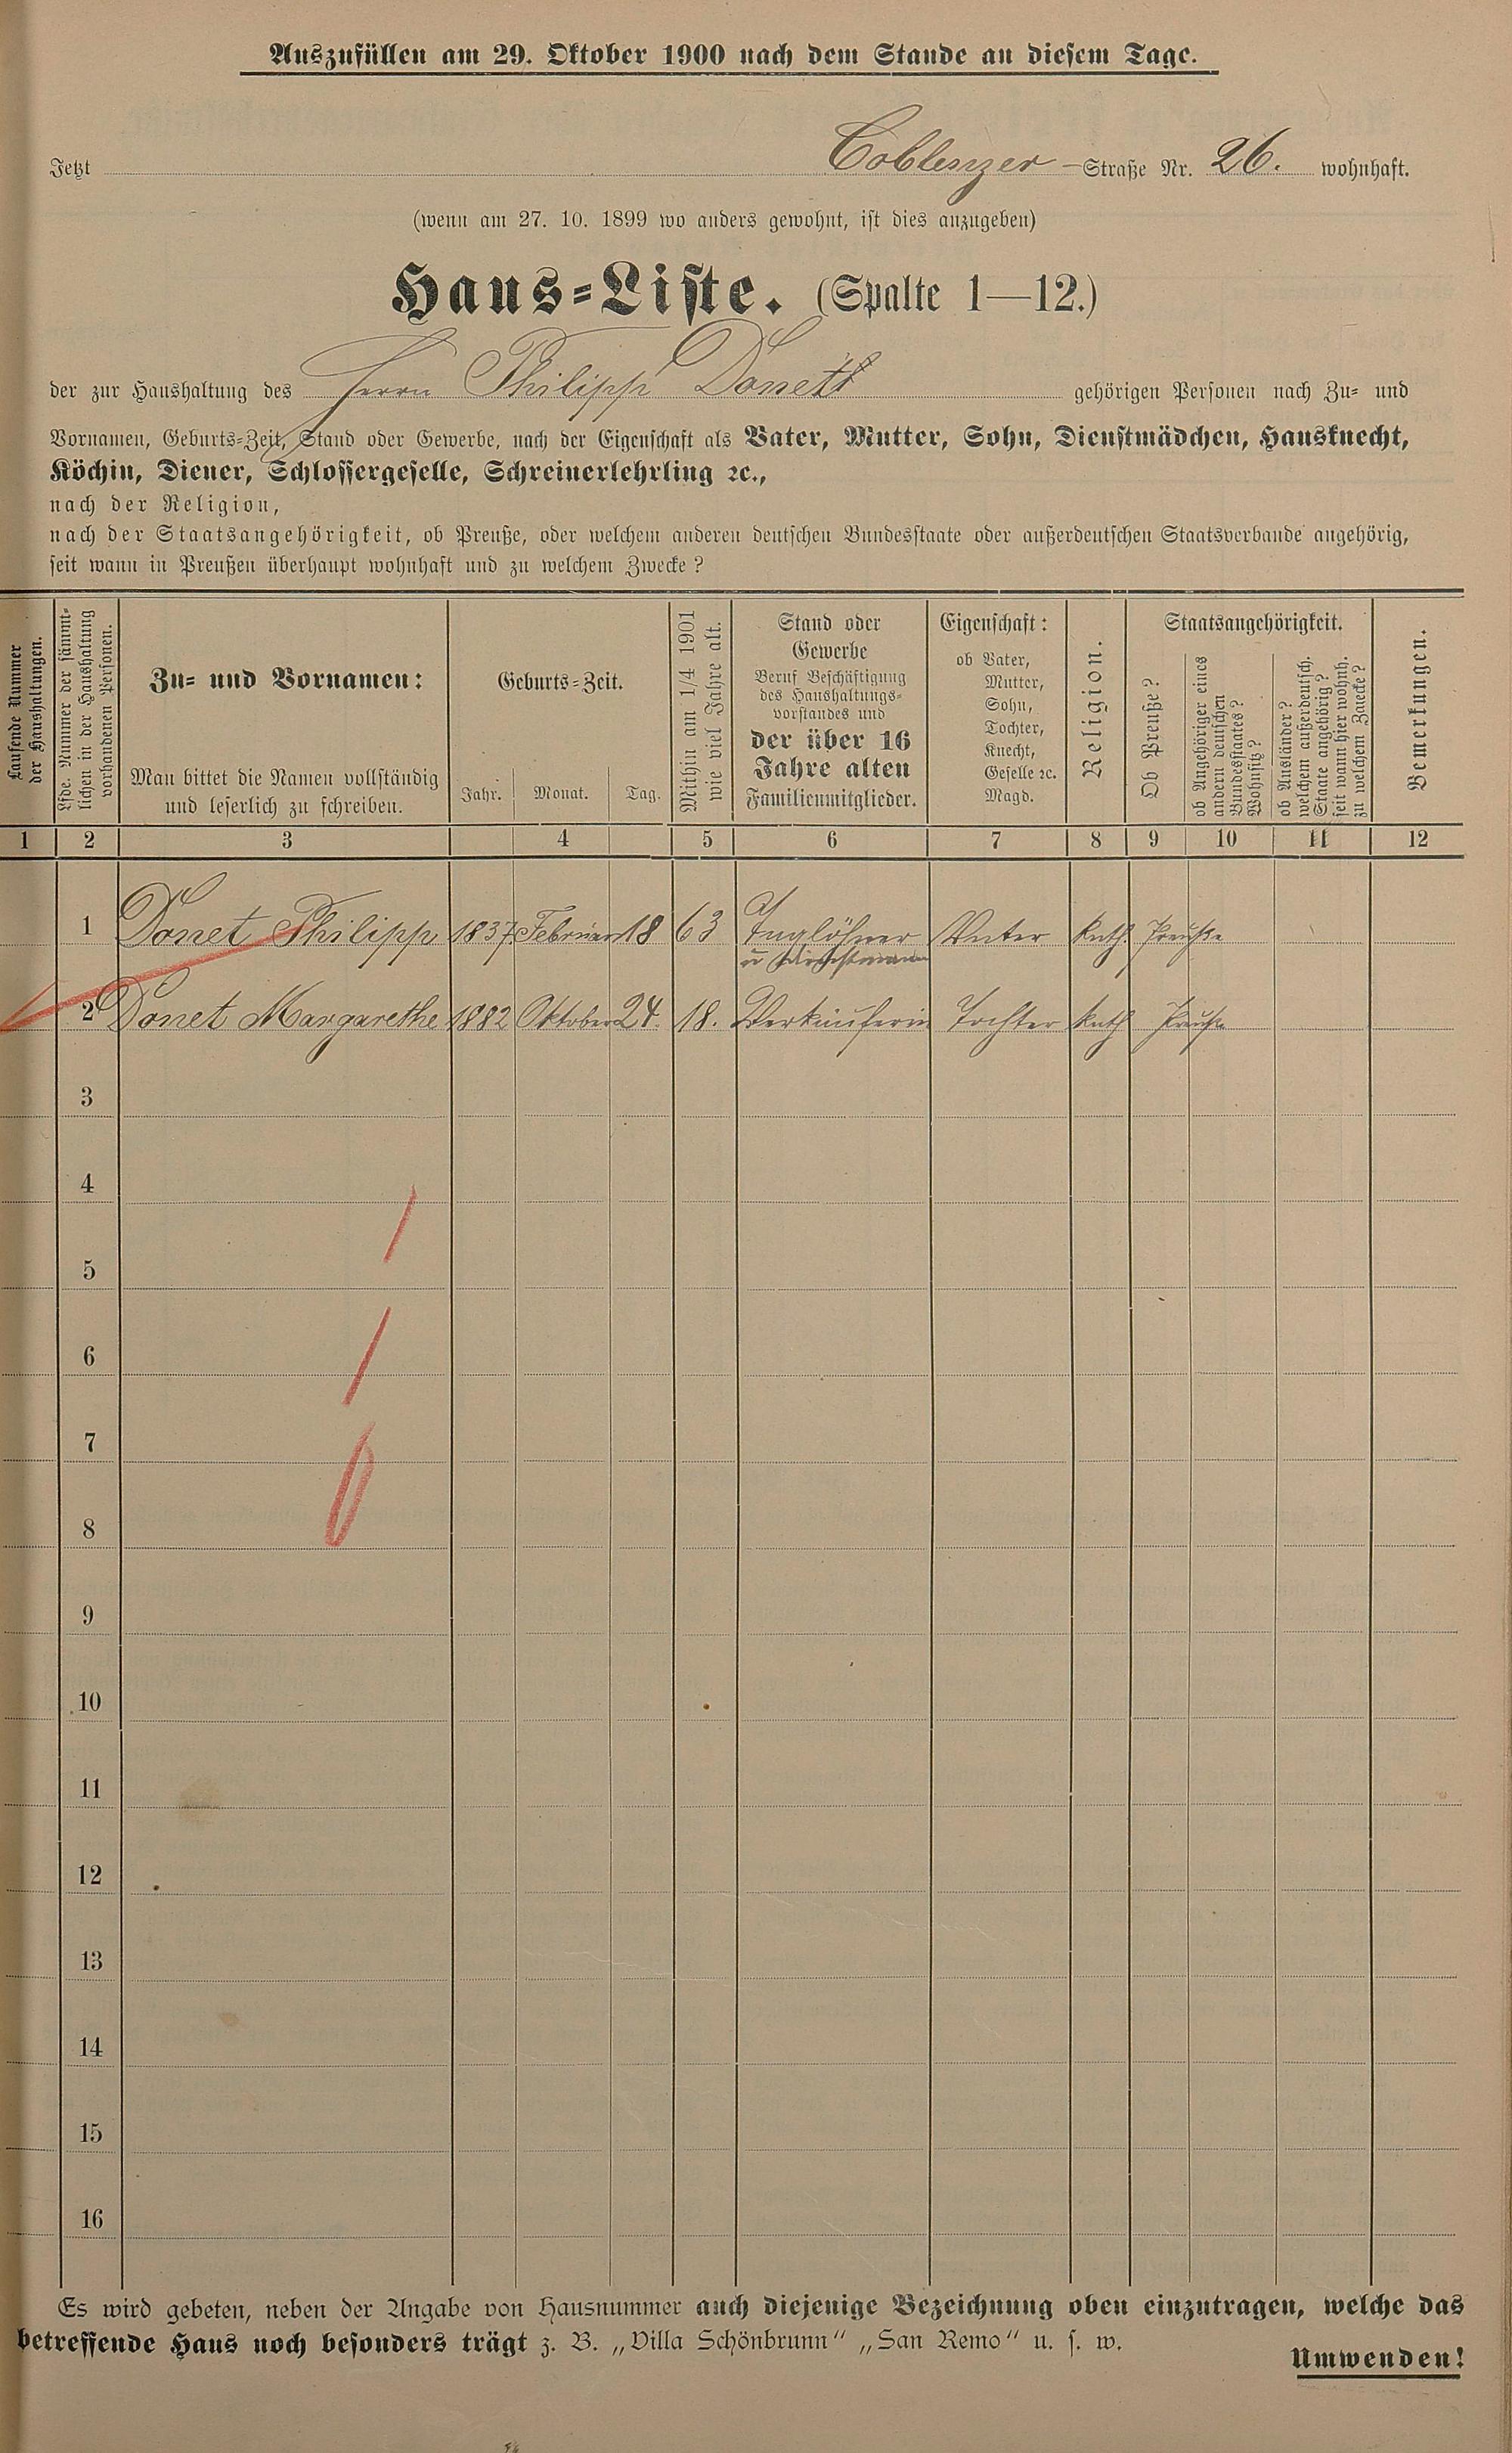 Auszufüllen am 29. Oktober 1900 nach dem Stande an diesem Tage.
Jetzt Coblenzer-Straße Nr. 26. wohnhaft.
(wenn am 27. 10. 1899 wo anders gewohnt, ist dies anzugeben)
Haus-Liste. (Spalte 1—12.)
der zur Haushaltung des Herrn Philipp Donett gehörigen Personen nach Zu- und
Vornamen, Geburts-Zeit, Stand oder Gewerbe, nach der Eigenschaft als Vater, Mutter, Sohn, Dienstmädchen, Hausknecht,
Köchin, Diener, Schlossergeselle, Schreinerlehrling ꝛc.,
nach der Religion,
nach der Staatsangehörigkeit, ob Preuße, oder welchem anderen deutschen Bundesstaate oder außerdeutschen Staatsverbande angehörig,
seit wann in Preußen überhaupt wohnhaft und zu welchem Zwecke?
Laufende Nummer
der Haushaltungen.
Lfde. Nummer der sämmt-
lichen in der Haushaltung
vorhandenen Personen.
Zu- und Vornamen:
Man bittet die Namen vollständig
und leserlich zu schreiben.
Geburts-Zeit.
Jahr. Monat. Tag.
Mithin am 1/4 1901
wie viel Jahre alt.
Stand oder
Gewerbe
Beruf Beschäftigung
des Haushaltungs-
vorstandes und
der über 16
Jahre alten
Familienmitglieder.
Eigenschaft:
ob Vater,
Mutter,
Sohn,
Tochter,
Knecht,
Geselle ꝛc.
Magd.
Religion.
Staatsangehörigkeit.
Ob Preuße?
ob Angehöriger eines
andern deutschen
Bundesstaates?
Wohnsitz?
ob Ausländer?
welchem außerdeutsch.
Staate angehörig?
seit wann hier wohnh.
zu welchem Zwecke?
Bemerkungen.
1 2 3 4 5 6 7 8 9 10 11 12
1 Donet Philipp 1837 Februar 18 63 Taglöhner Vater kath. Preuße
u Dienstmann
2 Donet Margarethe 1882 Oktober 24. 18. Verkäuferin Tochter kath Preuße
3
4
5
6
7
8
9
10
11
12
13
14
15
16
Es wird gebeten, neben der Angabe von Hausnummer auch diejenige Bezeichnung oben einzutragen, welche das
betreffende Haus noch besonders trägt z. B. „Villa Schönbrunn“ „San Remo“ u. s. w.
Umwenden!